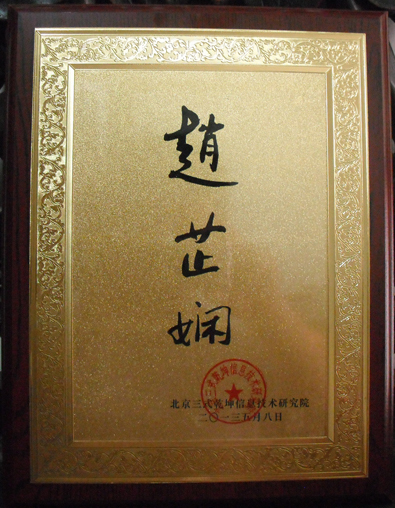 趙
芷
娴
北京三式乾坤信息技术研究院
二〇一三五月八日